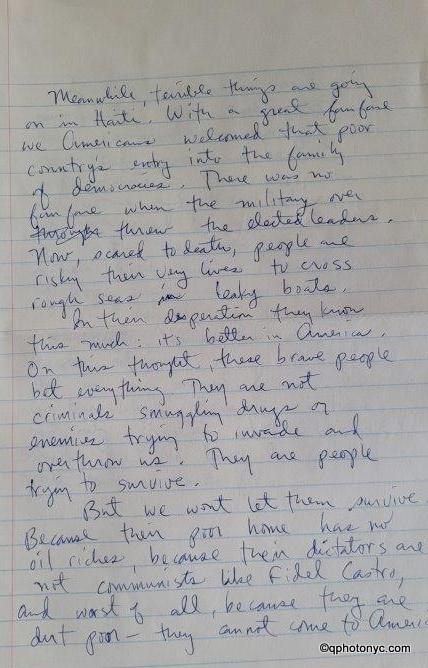 Meanwhile, terrible things are going
on in Haiti. With a great fan fare
we Americans welcomed that poor
country's entry into the family
of democracies. There was no
fan fare when the military over
through threw the elected leaders.
Now, scared to death, people are
risking their very lives to cross
rough seas in leaky boats.
In their desperation they know
this much: it's better in America.
On this thought, these brave people
bet everything. They are not
criminals smuggling drugs or
enemies trying to invade and
overthrow us. They are people
trying to survive.
But we wont let them survive.
Because their poor home has no
oil riches, because their dictators are
not communists like Fidel Castro,
and worst of all, because they are
dirt poor - they cannot come to America
©qphotonyc.com